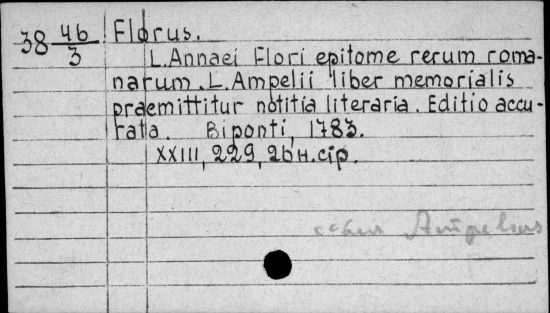 38 46/3 Florus.
L. Annaei Flori epitome rerum roma-
narum. L. Ampelii liber memorialis
praemittitur notitia literaria. Editio accu-
rata. Biponti, 1783.
XXIII, 229, 26 н. cip.
Ampelius